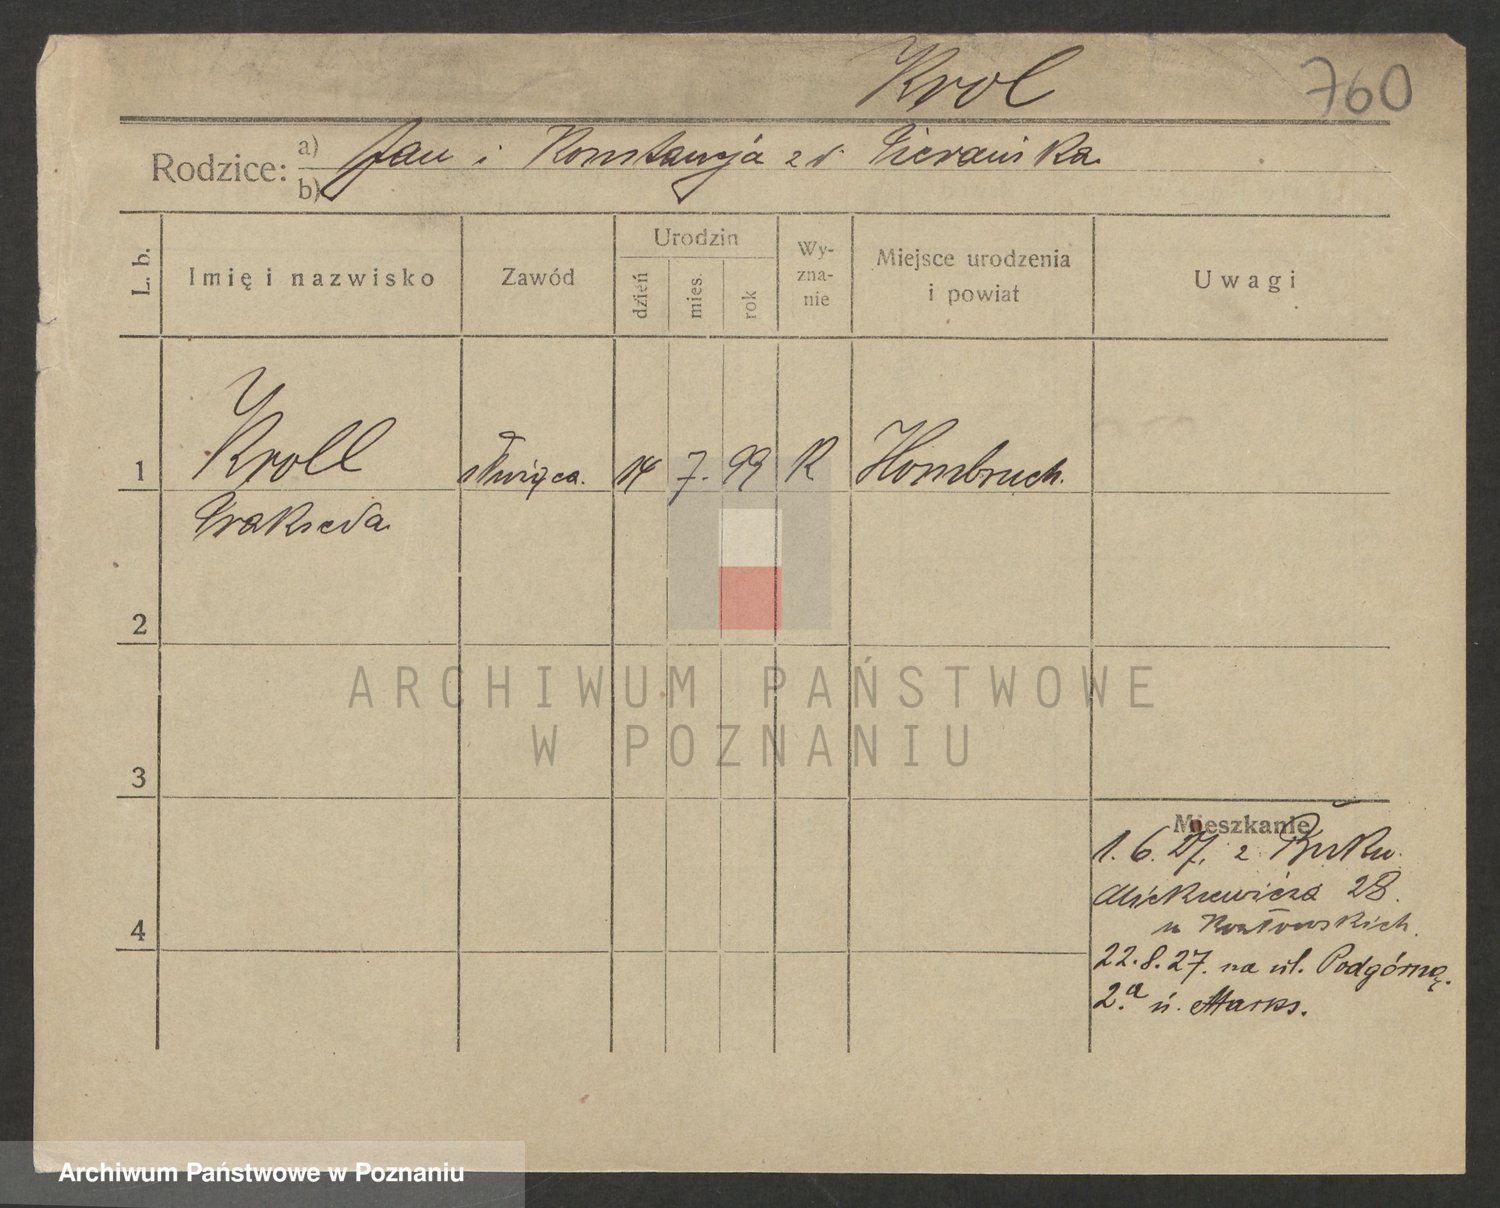 Krol 760
Rodzice: a) Jan i Konstancja z d.
b)
L. b. Imię i nazwisko Zawód Urodzin dzień mies. rok Wy-zna-nie Miejsce urodzenia i powiat Uwagi
1 Kroll służąca. 14 7. 99 R Hombruch.
Prakseda
2
ARCHIWUM PAŃSTWOWE
W POZNANIU
3
Mieszkanie
1. 6. 27. z Buku.
Mickiewicza 28.
u Kozłowskich.
4
22. 8. 27. na ul. Podgórną.
2.a u. Marks.
Archiwum Państwowe w Poznaniu